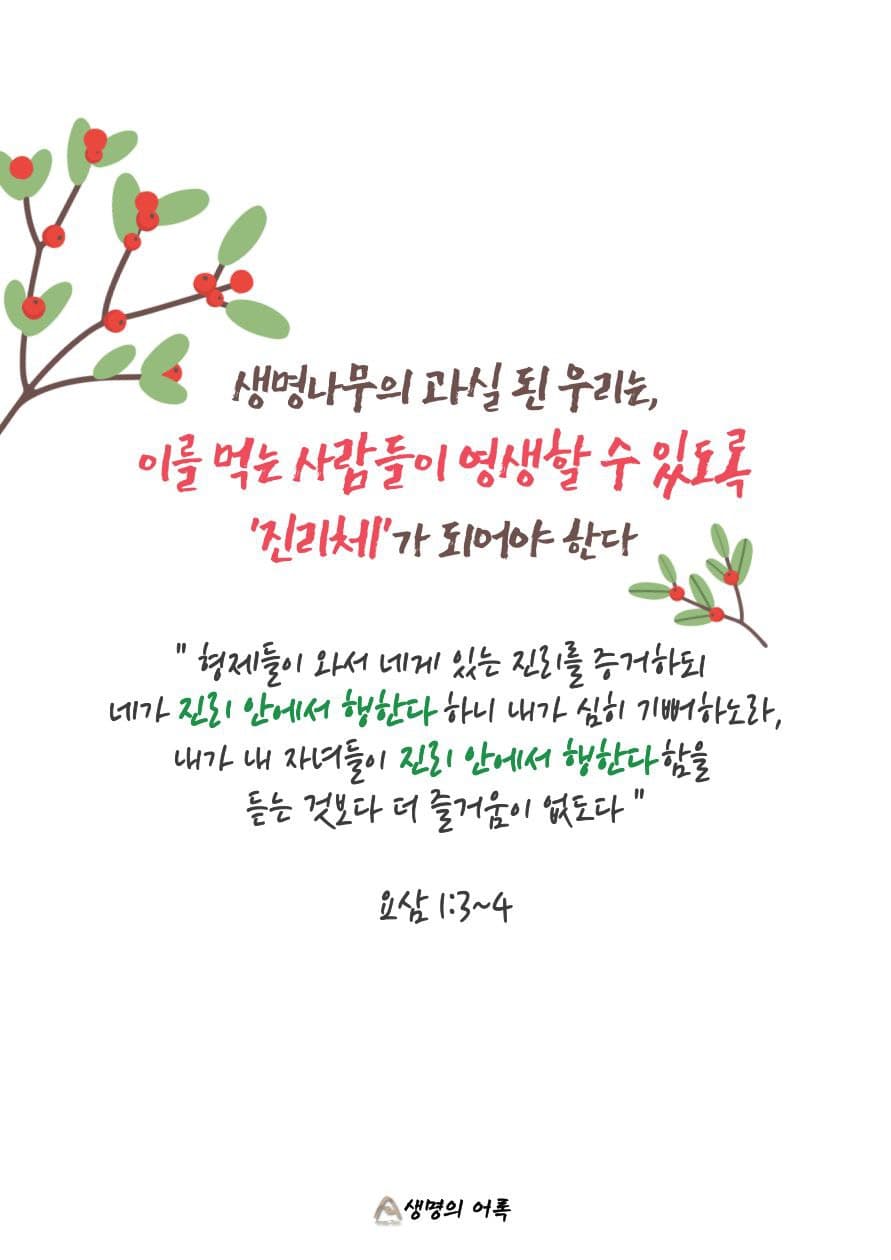 생명나무의 과실 된 우리는,
이를 먹는 사람들이 영생할 수 있도록
'진리체'가 되어야 한다
" 형제들이 와서 네게 있는 진리를 증거하되
네가 진리 안에서 행한다 하니 내가 심히 기뻐하노라,
내가 내 자녀들이 진리 안에서 행한다 함을
듣는 것보다 더 즐거움이 없도다 "
요삼 1:3~4
생명의 어록